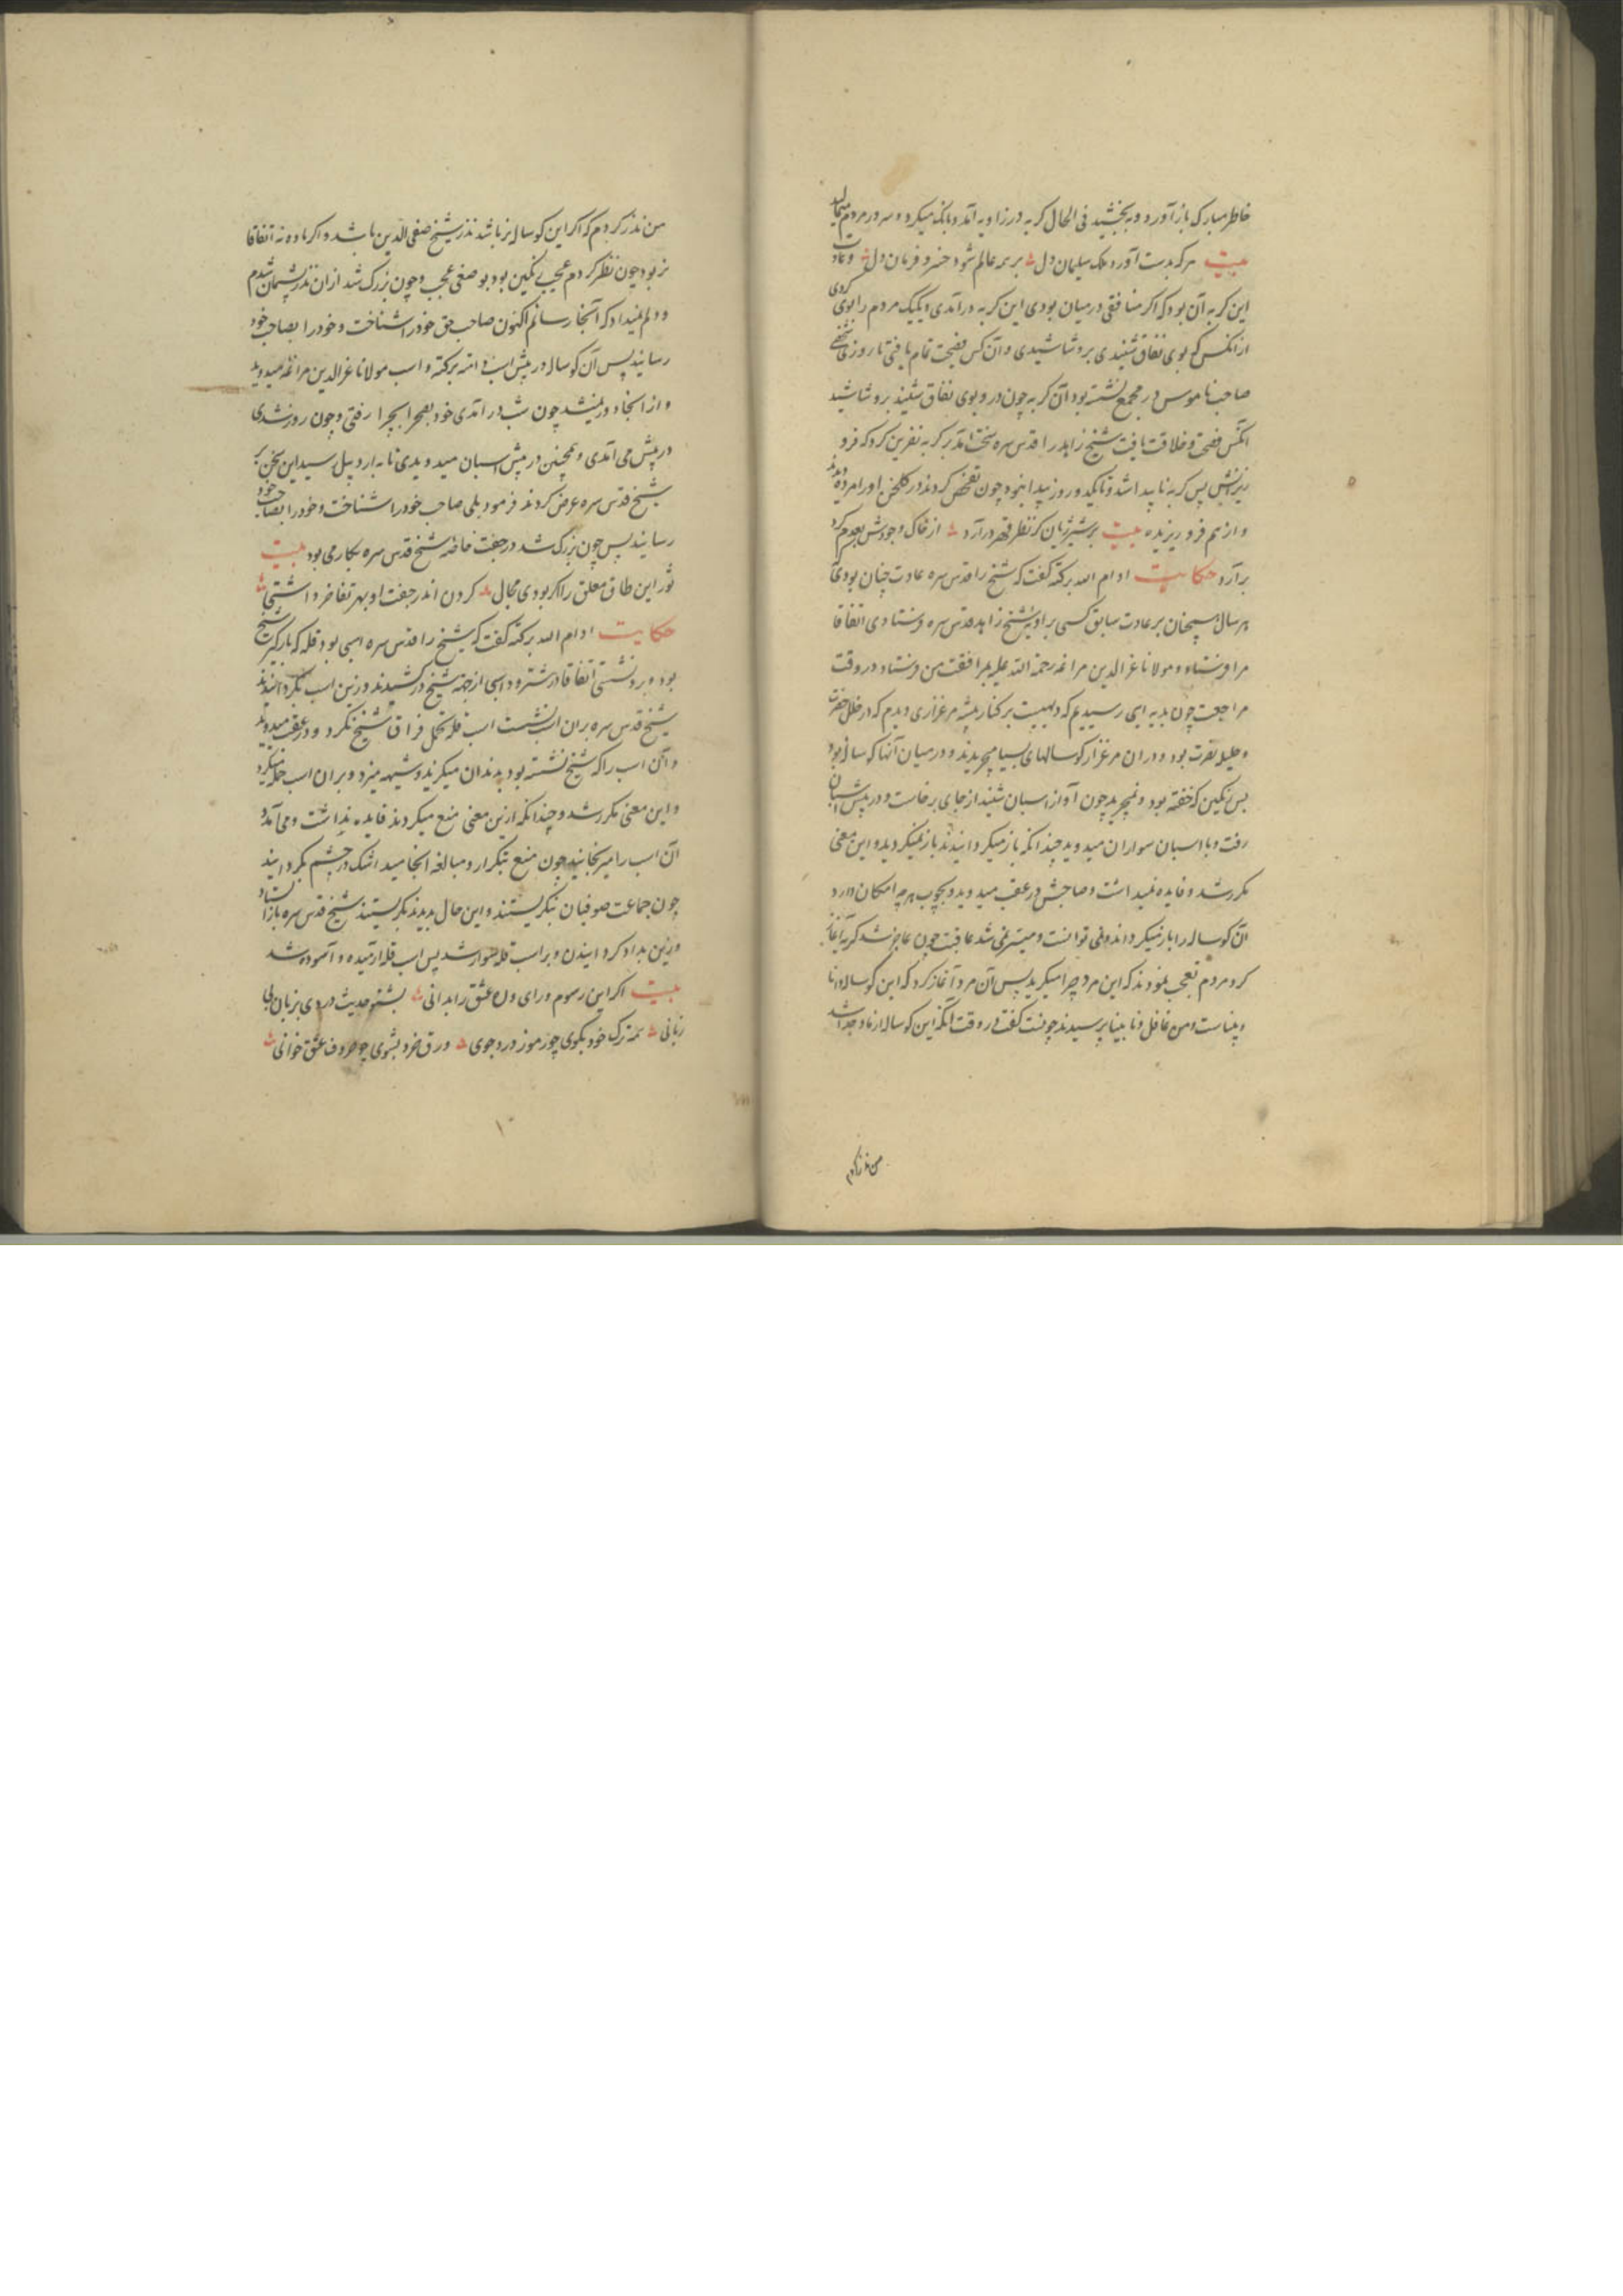 خاطر مبارک باز آورد و به بخشید فی الحال کربه در زاویه آمد و بانک میکرد و سر در مردم میمالید
بیت هرکه بدست آورد ملک سلیمان دل بر همه عالم شود خسرو فرمان دل و عادت
این کربه آن بود که اکر منافقی در میان بودی این کربه در آمدی و یکیک مردم را بوی کردی
از انکس که بوی نفاق شنیدی برو شاشیدی و آن کس فضیحت تمام یافتی تا روزی شخصی
صاحب ناموس در مجمع نشسته بود آن کربه چون درو بوی نفاق شنید برو شاشید
انکس فضیحت و خلاقت یافت شیخ زاهد را قدس سره سخت آمد بر کربه نفرین کرد که فرو
ریزانش پس کربه ناپیدا شد و تا یکدو روز پیدا نبود چون تفحص کردند در کلخن او را مرده دیدند
و از هم فرو ریزیده بیت بر شیر ژیان کر نظر قهر در آرد از خاک وجودش بعدم کرد
بر آرد حکایت ادام الله برکته کفت که شیخ را قدس سره عادت چنان بودی که
هر سال همچنان بر عادت سابق کسی براویه شیخ زاهد قدس سره فرستادی اتفاقا
مرا فرستاد و مولانا عز الدین مراغه رحمة الله علیه بمرافقت من فرستاد در وقت
مراجعت چون بدیه ایی رسیدیم که دیهیست بر کنار بیشه مرغزاری دیدم که در ظل خضرت
و حلیله نضرت بود و در ان مرغزار کوسالهای بسیار میچریدند و در میان آنها کوساله بود
بس نمکین که خفته بود و نمیچرید چون آواز اسبان شنید از جای برخاست و در پیش اسبان
رفت و با اسبان سواران میدوید چندانکه باز میکردانیدند باز نمیکردید و این معنی
مکرر شد و فایده نمیداشت و صاحبش در عقب میدوید و بچوب هر چه امکان دارد
آن کوساله را باز میکرداند و نمی توانست و میسر نمی شد عاقبت چون عاجز شد کریه آغاز
کرد مردم تعجب نمودند که این مرد چرا میکرید پس آن مرد آغاز کرد که این کوساله دانا
و بیناست و من غافل و نابینا پرسیدند چونست کفت در وقت آنکه این کوساله از مادر جدا شد
من نذر کردم
من نذر کردم که اکر این کوساله نر باشد نذر شیخ صفی الدین باشد و اکر ماده نه اتفاقا
نر بود چون نظر کردم عجیبی نمکین بود بوصفی عجب و چون بزرک شد از ان نذر پشیمان شدم
و دلم نمیداد که آنجا رسانم اکنون صاحب حق خود را شناخت و خود را بصاحب خود
رسانید پس آن کوساله در پیش اسب ادام الله برکته و اسب مولانا عز الدین مراغه میدوید
و از آنجا دور نمیشد چون شب در آمدی خود بصحرا بچرا رفتی و چون روز شدی
در پیش می آمدی و همچنین در پیش اسبان میدویدی تا به اردبیل رسید این سخن بر
شیخ قدس سره عرض کردند فرمود بلی صاحب خود را شناخت و خود را بصاحب خود
رسانید پس چون بزرک شد در جفت خاصه شیخ قدس سره بکار می بود بیت
ثور این طاق معلق را اکر بودی مجال کردن اندر جفت او بهر تفاخر داشتی
حکایت ادام الله برکته کفت که شیخ را قدس سره اسبی بود قله که بارکیر شیخ
بود و برو نشستی اتفاقا در شترود اسبی از جهة شیخ در کشیدند و زین اسب بکردانیدند
شیخ قدس سره بر ان اسب نشست اسب قله تحمل فراق شیخ نکرد و در عقب میدوید
و آن اسب را که شیخ نشسته بود بدندان میکزید و شیهه میزد و بر ان اسب حمله میکرد
و این معنی مکرر شد و چندانکه ازین معنی منع میکردند فایده نداشت و می آمد و
آن اسب را میرنجانید چون منع بتکرار و مبالغه انجامید اشک در چشم بکردانید
چون جماعت صوفیان بنکریستند و این حال بدیدند بکریستند شیخ قدس سره باز ایستاد
و زین بدو کردانیدن و بر اسب قله سوار شد پس اسب قله آرمیده و آسوده شد
بیت اکر این رسوم ورای ره عشق را بدانی بشنو حدیث دردی بزبان بی
زبانی همه ترک خود بکوی چو رموز درد جوی ورق خرد بشوی چو حروف عشق خوانی